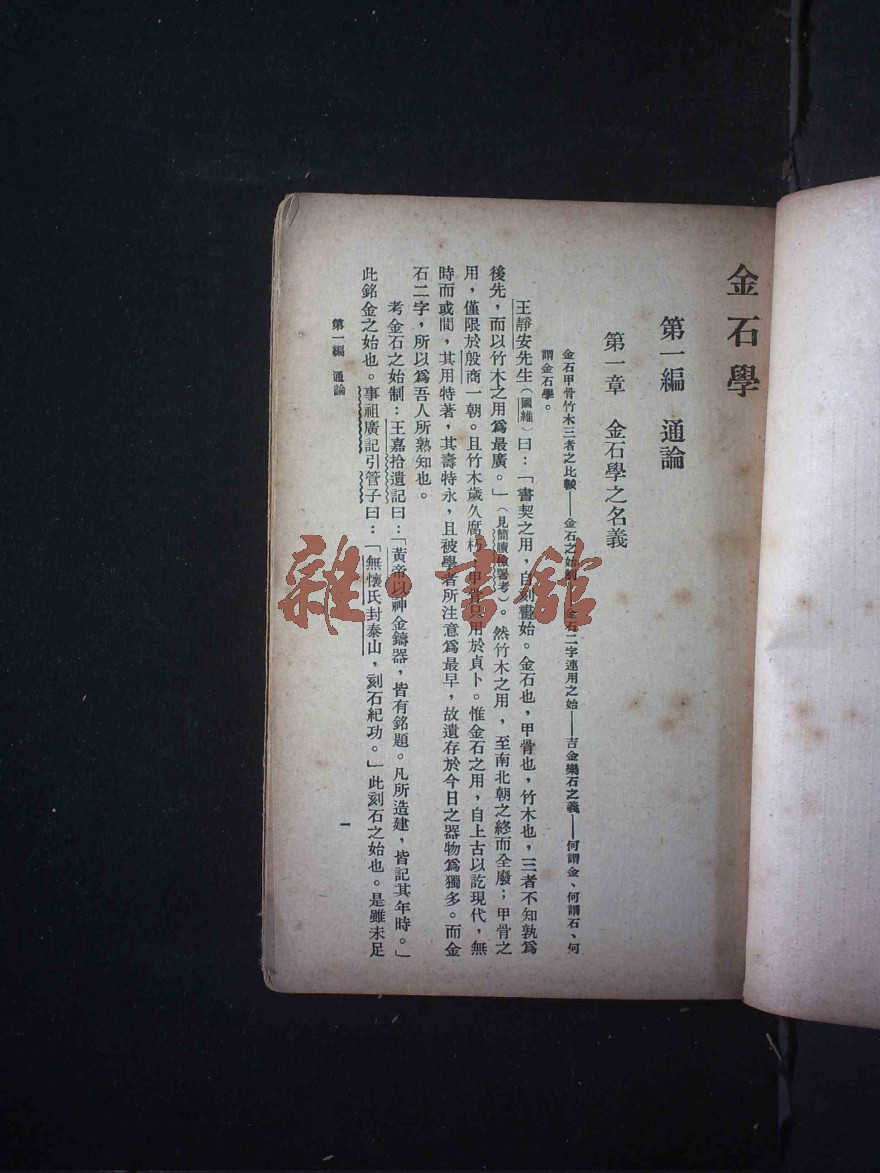 金石學
第一編　通論
第一章　金石學之名義
金石甲骨竹木三者之比較——金石之始制——金石二字連用之始——吉金樂石之義——何謂金、何謂石、何
謂金石學。
王靜安先生（國維）曰：「書契之用，自刻畫始。金石也，甲骨也，竹木也，三者不知孰爲
後先，而以竹木之用爲最廣。」（見簡牘檢署考）。然竹木之用，至南北朝之終而全廢；甲骨之
用，僅限於殷商一朝。且竹木歲久腐朽，甲骨只用於貞卜。惟金石之用，自上古以訖現代，無
時而或間，其用特著，其壽特永，且被學者所注意爲最早，故遺存於今日之器物爲獨多。而金
石二字，所以爲吾人所熟知也。
考金石之始制：王嘉拾遺記曰：「黃帝以神金鑄器，皆有銘題。凡所造建，皆記其年時。」
此銘金之始也。事祖廣記引管子曰：「無懷氏封泰山，刻石紀功。」此刻石之始也。是雖未足
第一編　通論
一
雜·書館